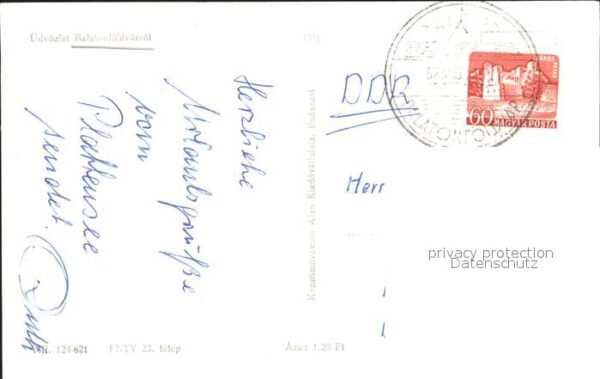 Üdvözlet Balatonföldvárról
Herzliche
Urlaubsgrüße
vom
Plattensee
sendet
Képzőművészeti Alap Kiadóvállalata, Budapest
DDR
Herr
60
MAGYAR POSTA
BALATONFÖLDVÁR
privacy protection
Datenschutz
124-621 FNYV 23. telep
Ára: 1,20 Ft